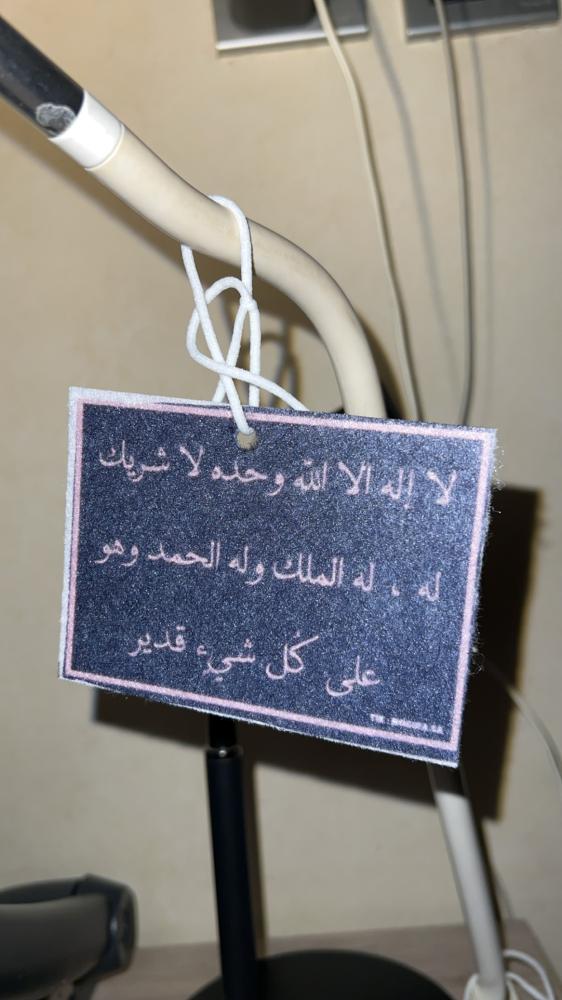 لا إله الا الله وحده لا شريك
له ، له الملك وله الحمد وهو
على كُل شيء قدير